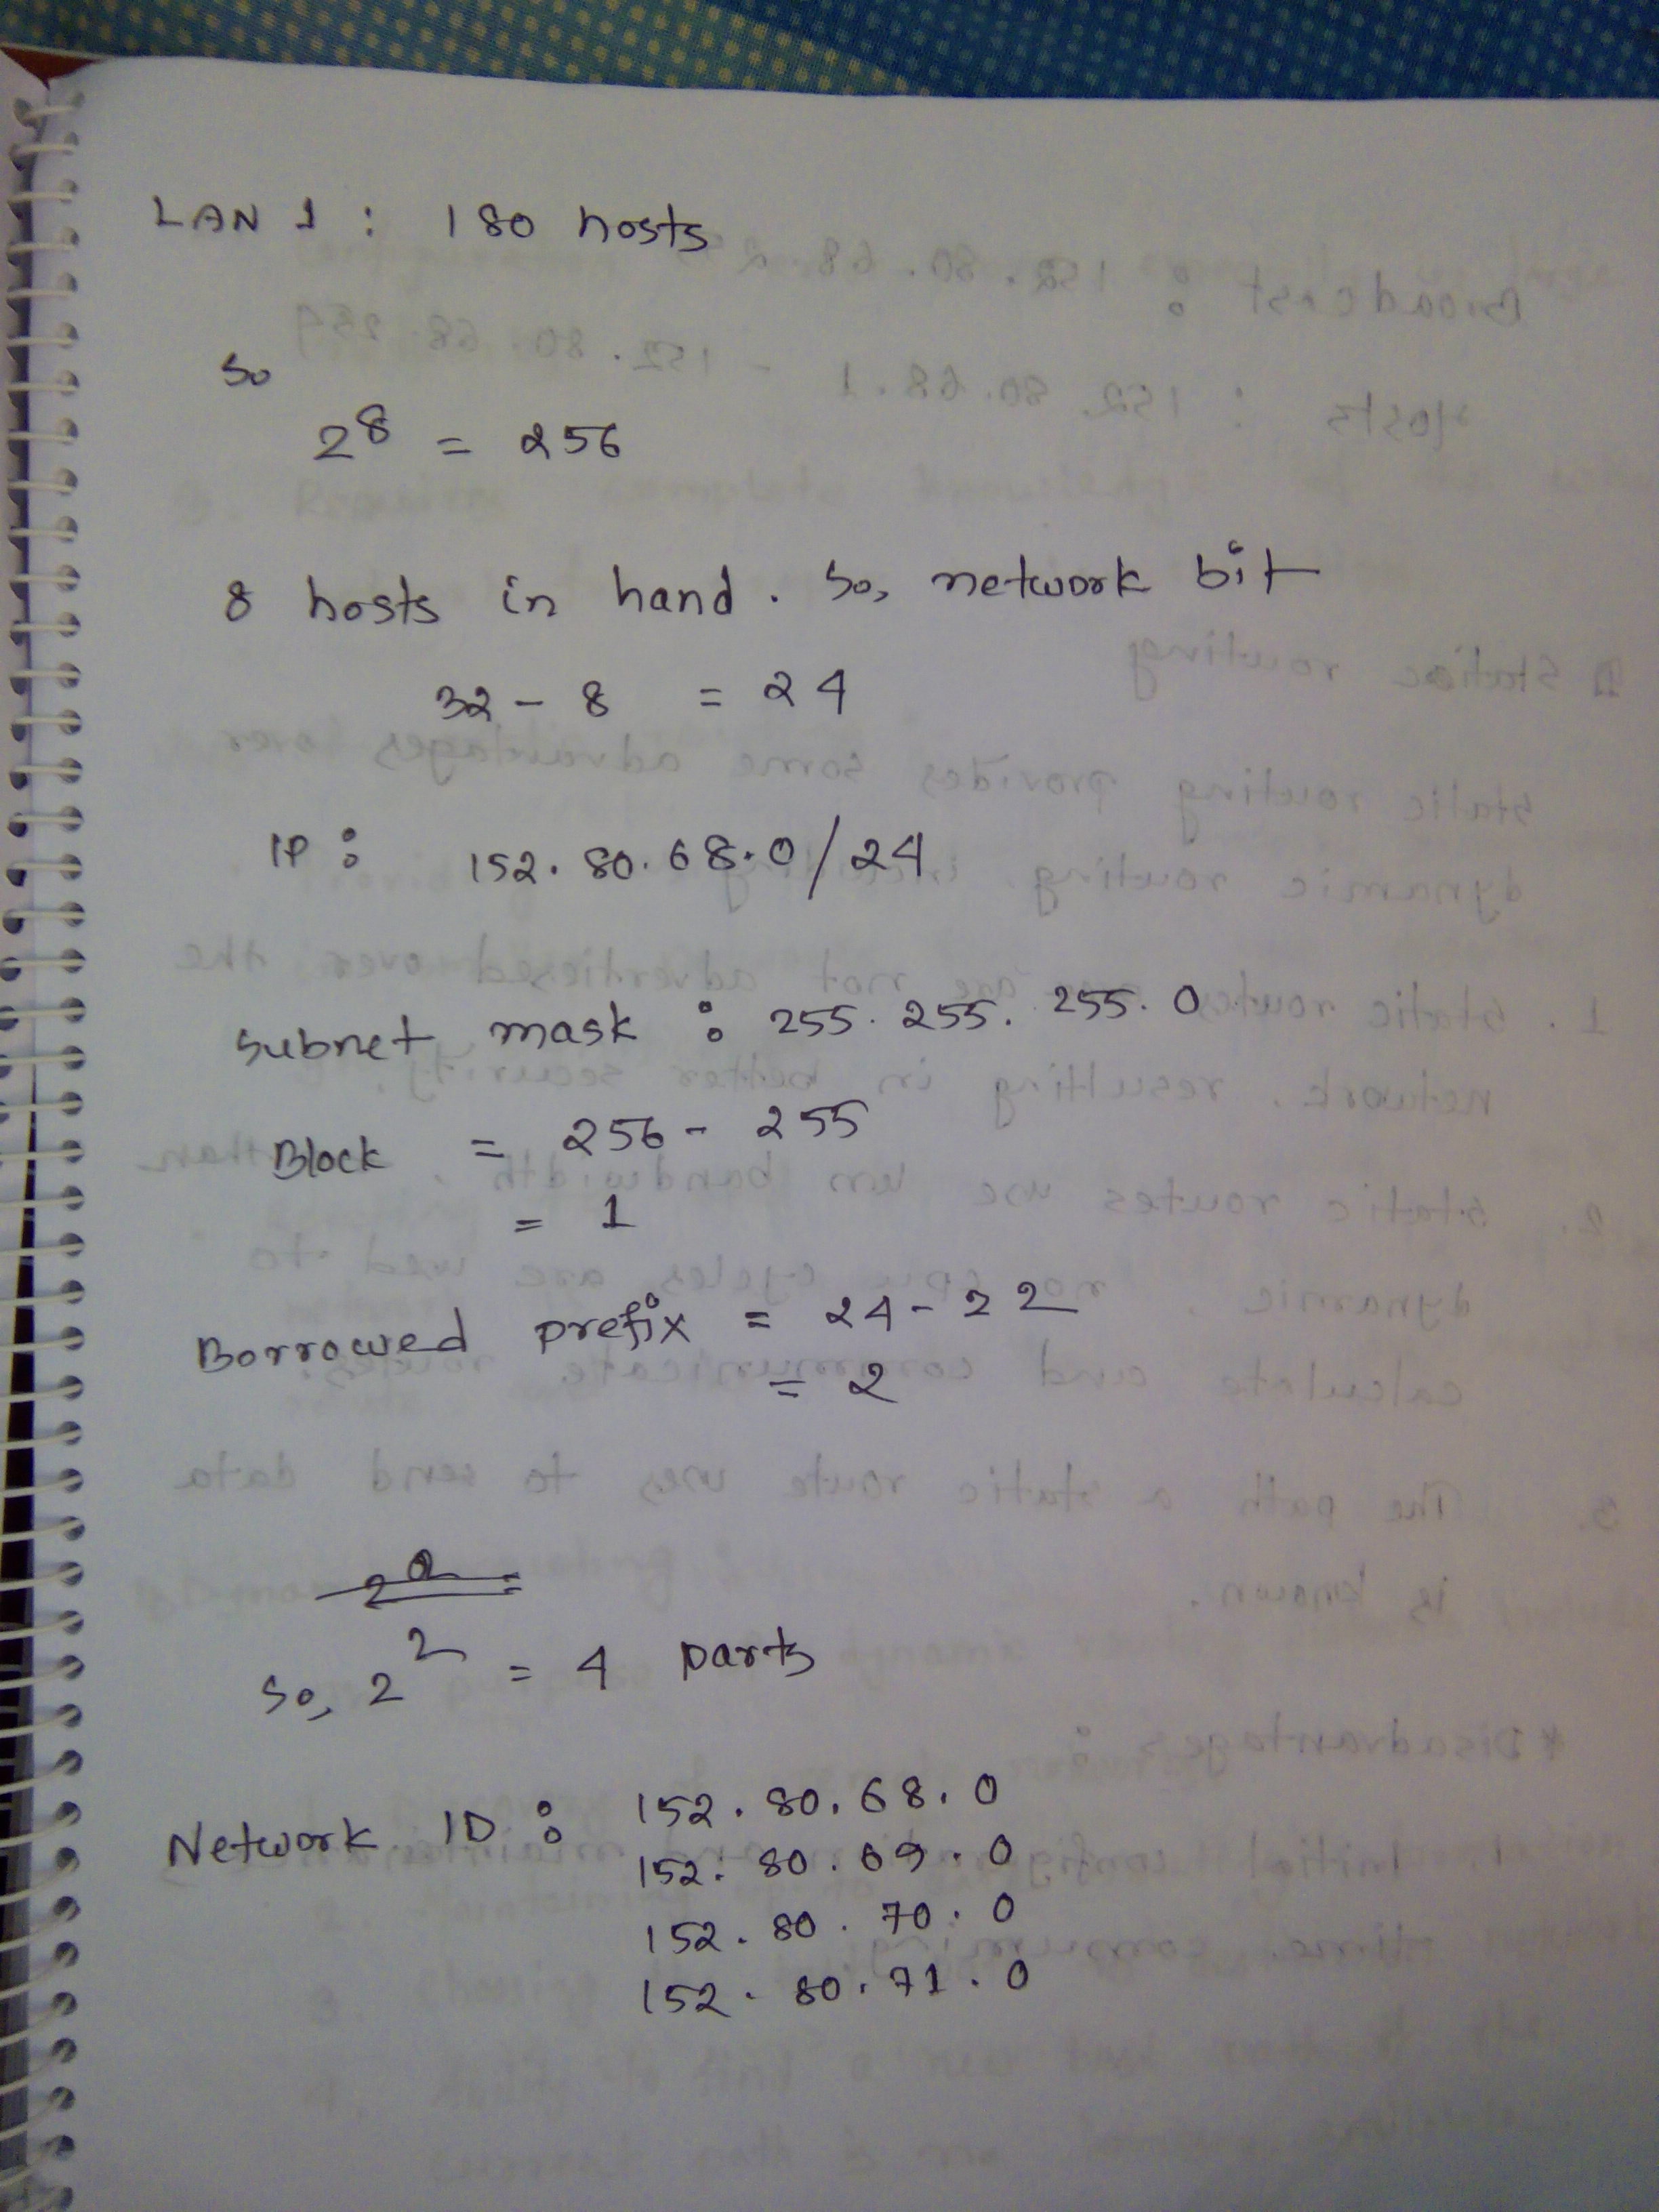 LAN 1 : 180 hosts
so
2^8 = 256
8 hosts in hand. So, network bit
32 - 8 = 24
IP : 152.80.68.0/24
Subnet mask : 255.255.255.0
Block = 256 - 255
= 1
Borrowed prefix = 24 - 22
= 2
So, 2^2 = 4 parts
Network ID : 152.80.68.0
152.80.69.0
152.80.70.0
152.80.71.0